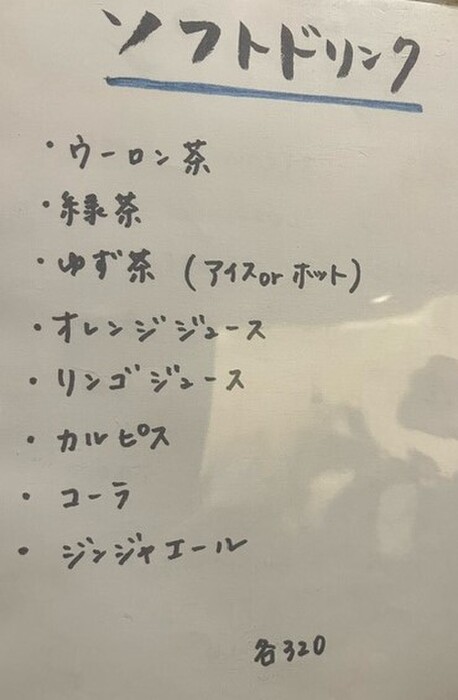 ソフトドリンク
・ウーロン茶
・緑茶
・ゆず茶 (アイスor ホット)
・オレンジジュース
・リンゴジュース
・カルピス
・コーラ
・ジンジャエール
各320